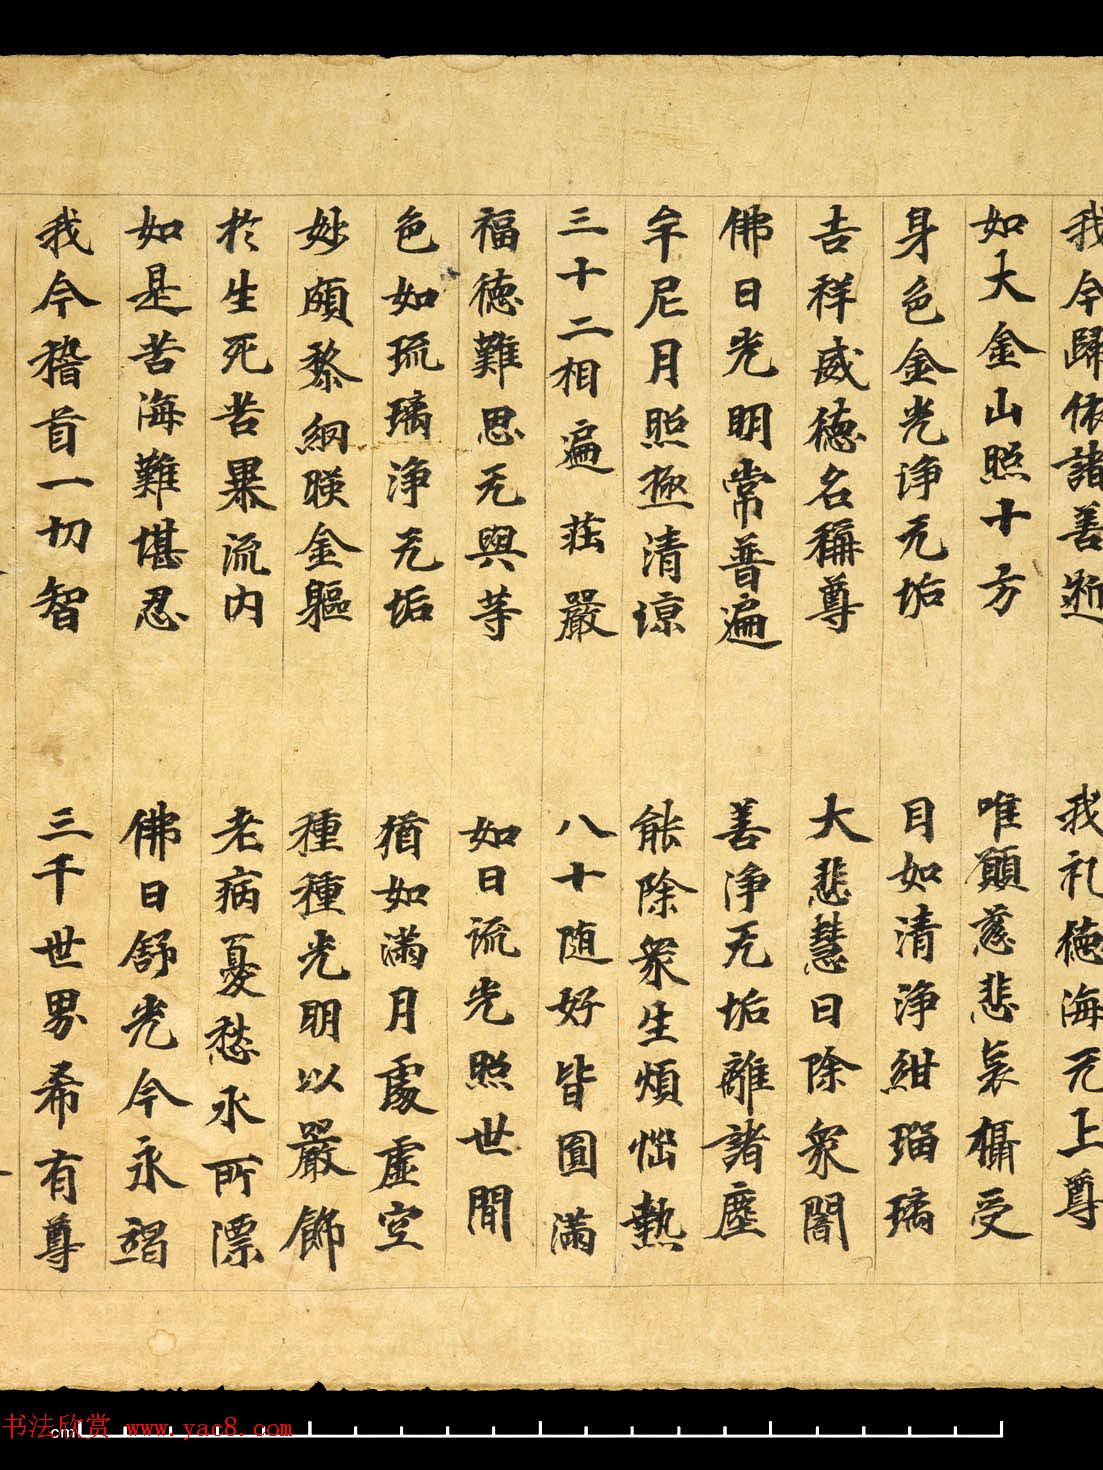 我今歸依諸善逝 我礼德海无上尊
如大金山照十方 唯願慈悲哀攝受
身色金光淨无垢 目如清淨紺瑠璃
吉祥威德名稱尊 大悲慧日除衆闇
佛日光明常普遍 善淨无垢離諸塵
牟尼月照極清涼 能除衆生煩惱熱
三十二相遍莊嚴 八十随好皆圓滿
福德難思无與等 如日流光照世間
色如琉璃淨无垢 猶如滿月處虛空
妙頗黎網暎金軀 種種光明以嚴飾
於生死苦暴流内 老病憂愁水所漂
如是苦海難堪忍 佛日舒光令永竭
我今稽首一切智 三千世界希有尊
书法欣赏 www.yac8.com
cm